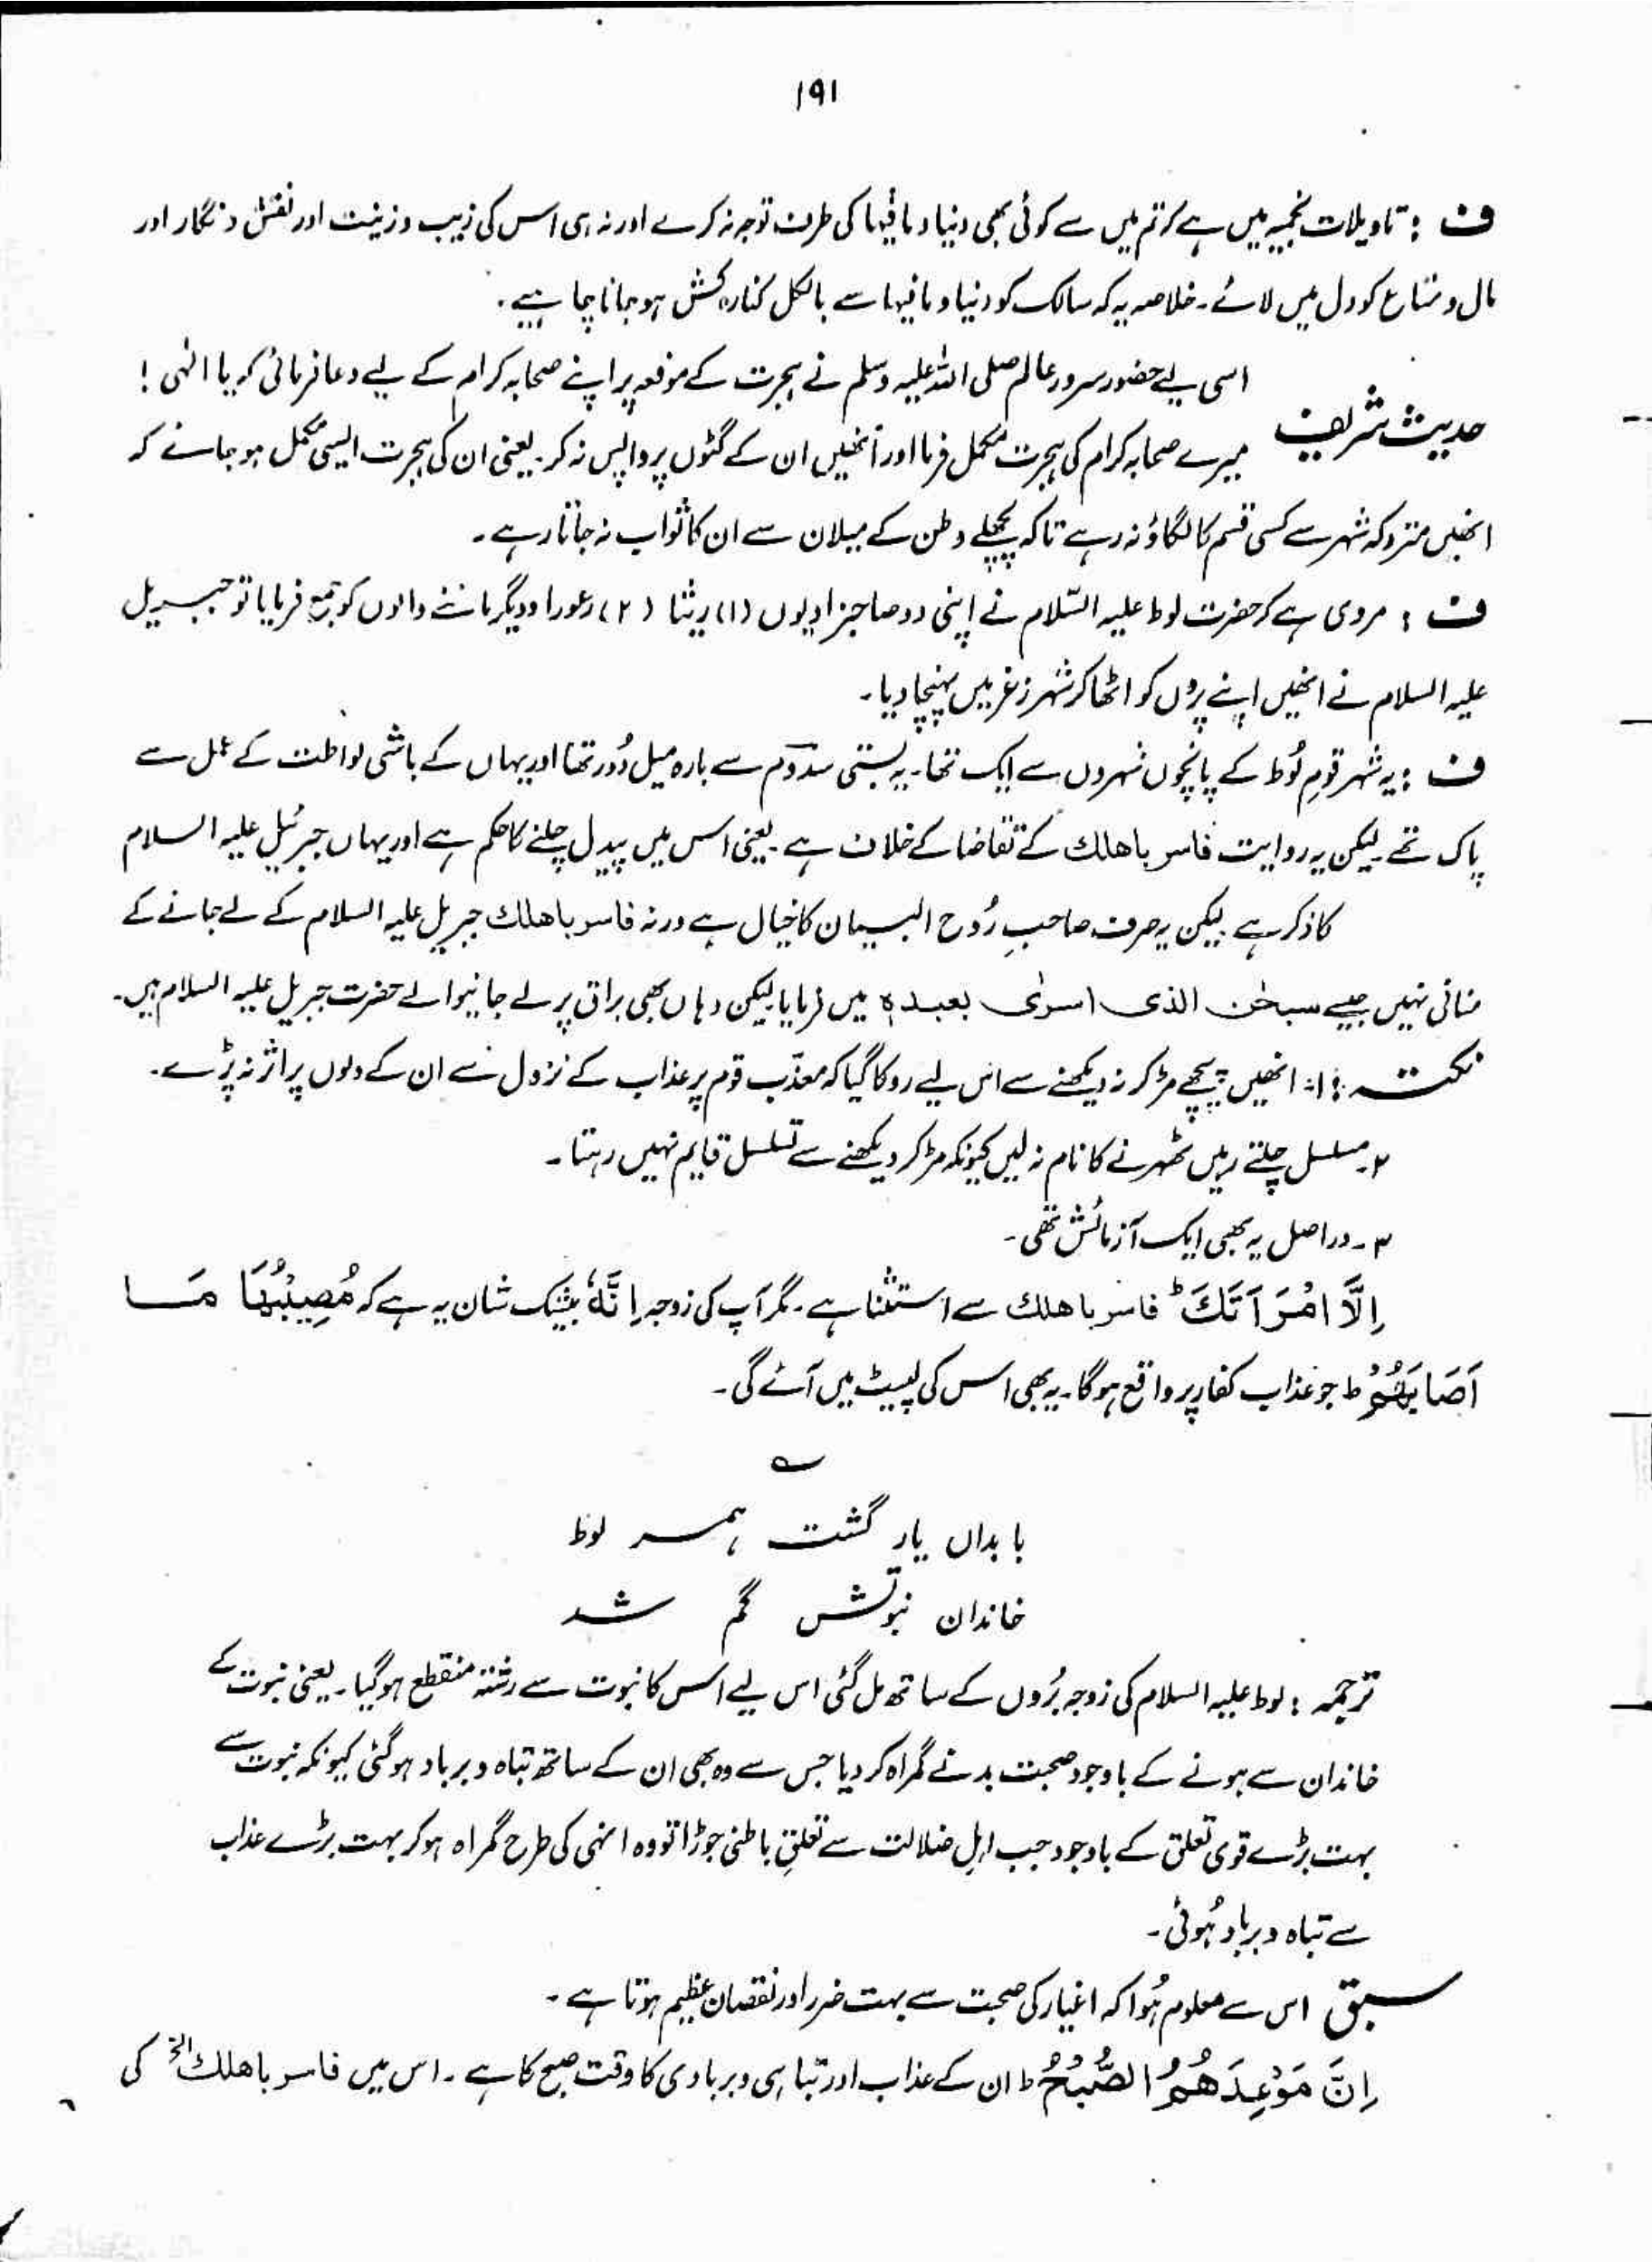 ۱۹۱
ف : تاویلات نجمیہ میں ہے کہ تم میں سے کوئی بھی دنیا و مافیہا کی طرف توجہ نہ کرے اور نہ ہی اس کی زیب و زینت اور نقش و نگار اور
مال و متاع کو دل میں لائے۔ خلاصہ یہ کہ سالک کو دنیا و مافیہا سے بالکل کنارہ کش ہو جانا چاہیے۔
حدیث شریف اسی لیے حضور سرور عالم صلی اللہ علیہ وسلم نے ہجرت کے موقعہ پر اپنے صحابہ کرام کے لیے دعا فرمائی کہ یا الٰہی !
میرے صحابہ کرام کی ہجرت مکمل فرما اور اُنھیں ان کے گٹوں پر واپس نہ کر۔ یعنی ان کی ہجرت ایسی مکمل ہو جائے کہ
انھیں متروکہ شہر سے کسی قسم کا لگاؤ نہ رہے تاکہ پچھلے وطن کے میلان سے ان کا ثواب نہ جاتا رہے۔
ف : مروی ہے کہ حضرت لوط علیہ السّلام نے اپنی دو صاجزادیوں (۱) ریثا (۲) رعورا ودیگر ماننے والوں کو جمع فرمایا تو جبریل
علیہ السلام نے انھیں اپنے پروں کو اٹھا کر شہر زغر میں پہنچا دیا۔
ف : یہ شہر قومِ لُوط کے پانچوں شہروں سے ایک تھا۔ یہ بستی سدوم سے بارہ میل دُور تھا اور یہاں کے باشی لواطت کے عمل سے
پاک تھے۔ لیکن یہ روایت فاسر باھلک کے تقاضا کے خلاف ہے۔ یعنی اس میں پیدل چلنے کا حکم ہے اور یہاں جبرئیل علیہ السلام
کا ذکر ہے۔ لیکن یہ صرف صاحبِ رُوح البیان کا خیال ہے ورنہ فاسر باھلک جبریل علیہ السلام کے لے جانے کے
منافی نہیں جیسے سبحٰن الذی اسرٰی بعبدہٖ میں فرمایا لیکن وہاں بھی براق پر لے جانیوالے حضرت جبریل علیہ السلام ہیں۔
نکتہ : ۱۔ انھیں پیچھے مڑ کر نہ دیکھنے سے اس لیے روکا گیا کہ معذّب قوم پر عذاب کے نزول سے ان کے دلوں پر اثر نہ پڑے۔
۲۔ مسلسل چلتے رہیں ٹھہرنے کا نام نہ لیں کیونکہ مڑ کر دیکھنے سے تسلسل قایم نہیں رہتا۔
۳۔ دراصل یہ بھی ایک آزمائش تھی۔
اِلَّا امْرَاَتَكَ ؕ فاسر باھلک سے استثنا ہے۔ مگر آپ کی زوجہ اِنَّهٗ بیشک شان یہ ہے کہ مُصِیْبُهَا مَا
اَصَابَهُمْ ط جو عذاب کفار پر واقع ہوگا۔ یہ بھی اس کی لپیٹ میں آئے گی۔
؎
با بداں یار گشت ہمسر لوط
خاندان نبوّتش گم شد
ترجمہ : لوط علیہ السلام کی زوجہ بُروں کے ساتھ مل گئی اس لیے اس کا نبوت سے رشتہ منقطع ہوگیا۔ یعنی نبوت کے
خاندان سے ہونے کے باوجود صحبت بد نے گمراہ کر دیا جس سے وہ بھی ان کے ساتھ تباہ و برباد ہوگئی کیونکہ نبوت سے
بہت بڑے قوی تعلق کے باوجود جب اہلِ ضلالت سے تعلقِ باطنی جوڑا تو وہ انہی کی طرح گمراہ ہو کر بہت بڑے عذاب
سے تباہ و برباد ہُوئی۔
سبق اس سے معلوم ہُوا کہ اغیار کی صحبت سے بہت ضرر اور نقصان عظیم ہوتا ہے۔
اِنَّ مَوْعِدَهُمُ الصُّبْحُ ط ان کے عذاب اور تباہی و بربادی کا وقت صبح کا ہے۔ اس میں فاسر باھلک الخ کی